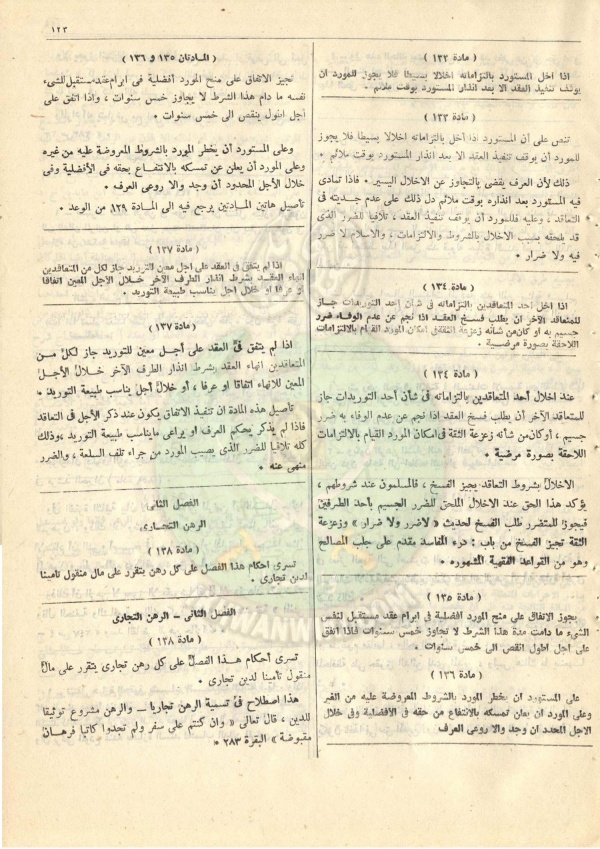 ١٢٣
( مادة ١٣٢ )
اذا اخل المستورد بالتزاماته اخلالا بسيطا فلا يجوز للمورد ان
يوقف تنفيذ العقد الا بعد انذار المستورد بوقت ملائم .
( مادة ١٣٣ )
تنص على أن المستورد اذا أخل بالتزاماته اخلالا بسيطا فلا يجوز
للمورد أن يوقف تنفيذ العقد الا بعد انذار المستورد بوقت ملائم .
ذلك لأن العرف يقضى بالتجاوز عن الاخلال اليسير . فاذا تمادى
فيه المستورد بعد انذاره بوقت ملائم دل ذلك على عدم جديته فى
التعاقد ، وعليه فللمورد أن يوقف تنفيذ العقد ، تلافيا للضرر الذى
قد يلحقه بسبب الاخلال بالشروط والالتزامات ، والاسلام لا ضرر
فيه ولا ضرار .
( مادة ١٣٤ )
اذا اخل احد المتعاقدين بالتزاماته فى شأن احد التوريدات جاز
للمتعاقد الآخر ان يطلب فسخ العقد اذا نجم عن عدم الوفاء ضرر
جسيم به او كان من شأنه زعزعة الثقة فى امكان المورد القيام بالالتزامات
اللاحقة بصورة مرضية .
( مادة ١٣٤ )
عند اخلال أحد المتعاقدين بالتزاماته فى شأن أحد التوريدات جاز
للمتعاقد الآخر أن يطلب فسخ العقد اذا نجم عن عدم الوفاء به ضرر
جسيم ، أو كان من شأنه زعزعة الثقة فى امكان المورد القيام بالالتزامات
اللاحقة بصورة مرضية .
الاخلال بشروط التعاقد يجيز الفسخ ، فالمسلمون عند شروطهم ،
يؤكد هذا الحق عند الاخلال الملحق للضرر الجسيم بأحد الطرفين
فيجوز للمتضرر طلب الفسخ لحديث « لاضرر ولا ضرار » وزعزعة
الثقة تجيز الفسخ من باب : درء المفاسد مقدم على جلب المصالح
وهو من القواعد الفقهية المشهوره .
( مادة ١٣٥ )
يجوز الاتفاق على منح المورد افضلية فى ابرام عقد مستقبل لنفس
الشىء ما دامت مدة هذا الشرط لا تجاوز خمس سنوات فاذا اتفق
على اجل اطول انقص الى خمس سنوات .
( مادة ١٣٦ )
على المستورد ان يخطر المورد بالشروط المعروضة عليه من الغير
وعلى المورد ان يعلن تمسكه بالانتفاع من حقه فى الأفضلية وفى خلال
الاجل المحدد ان وجد والا روعى العرف
( المادتان ١٣٥ و ١٣٦ )
تجيز الاتفاق على منح المورد أفضلية فى ابرام عقد مستقبل للشىء
نفسه ما دام هذا الشرط لا يجاوز خمس سنوات ، واذا اتفق على
أجل أطول ينقص الى خمس سنوات .
وعلى المستورد أن يخطر المورد بالشروط المعروضة عليه من غيره
وعلى المورد أن يعلن عن تمسكه بالانتفاع بحقه فى الأفضلية وفى
خلال الأجل المحدود أن وجد والا روعى العرف .
تأصيل هاتين المادتين يرجع فيه الى المادة ١٢٩ من الوعد .
( مادة ١٣٧ )
اذا لم يتفق فى العقد على اجل معين للتوريد جاز لكل من المتعاقدين
انهاء العقد بشرط انذار الطرف الآخر خلال الأجل المعين اتفاقا
او عرفا او خلال اجل يناسب طبيعة التوريد .
( مادة ١٣٧ )
اذا لم يتفق فى العقد على أجل معين للتوريد جاز لكل من
المتعاقدين انهاء العقد بشرط انذار الطرف الآخر خلال الأجل
المعين للانهاء اتفاقا أو عرفا ، أو خلال أجل يناسب طبيعة التوريد .
تأصيل هذه المادة ان تنفيذ الاتفاق يكون عند ذكر الأجل فى التعاقد
فاذا لم يذكر يحكم العرف او يراعى مايناسب طبيعة التوريد ، وذلك
كله تلافيا للضرر الذى يصيب المورد من جراء تلف السلعة ، والضرر
منهى عنه .
الفصل الثانى
الرهن التجارى
( مادة ١٣٨ )
تسرى احكام هذا الفصل على كل رهن يتقرر على مال منقول تأمينا
لدين تجارى .
الفصل الثانى – الرهن التجارى
( مادة ١٣٨ )
تسرى أحكام هذا الفصل على كل رهن تجارى يتقرر على مال
منقول تأمينا لدين تجارى .
هذا اصطلاح فى تسمية الرهن تجاريا – والرهن مشروع توثيقا
للدين ، قال تعالى « وان كنتم على سفر ولم تجدوا كاتبا فرهان
مقبوضة » البقرة ٢٨٣ .